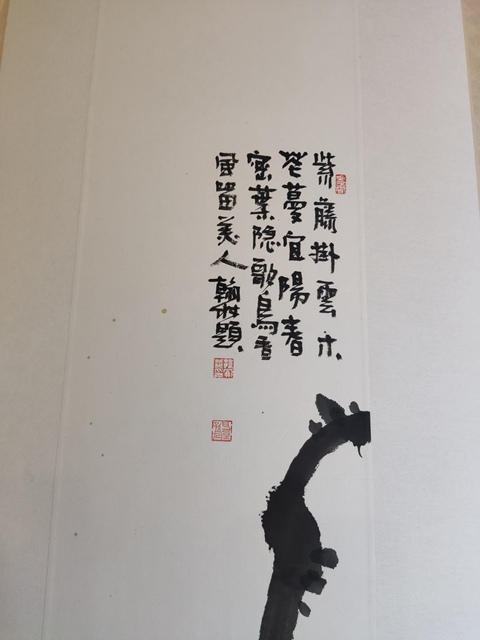 紫藤掛雲木
花蔓宜陽春
密葉隐歌鳥香
風留美人 題